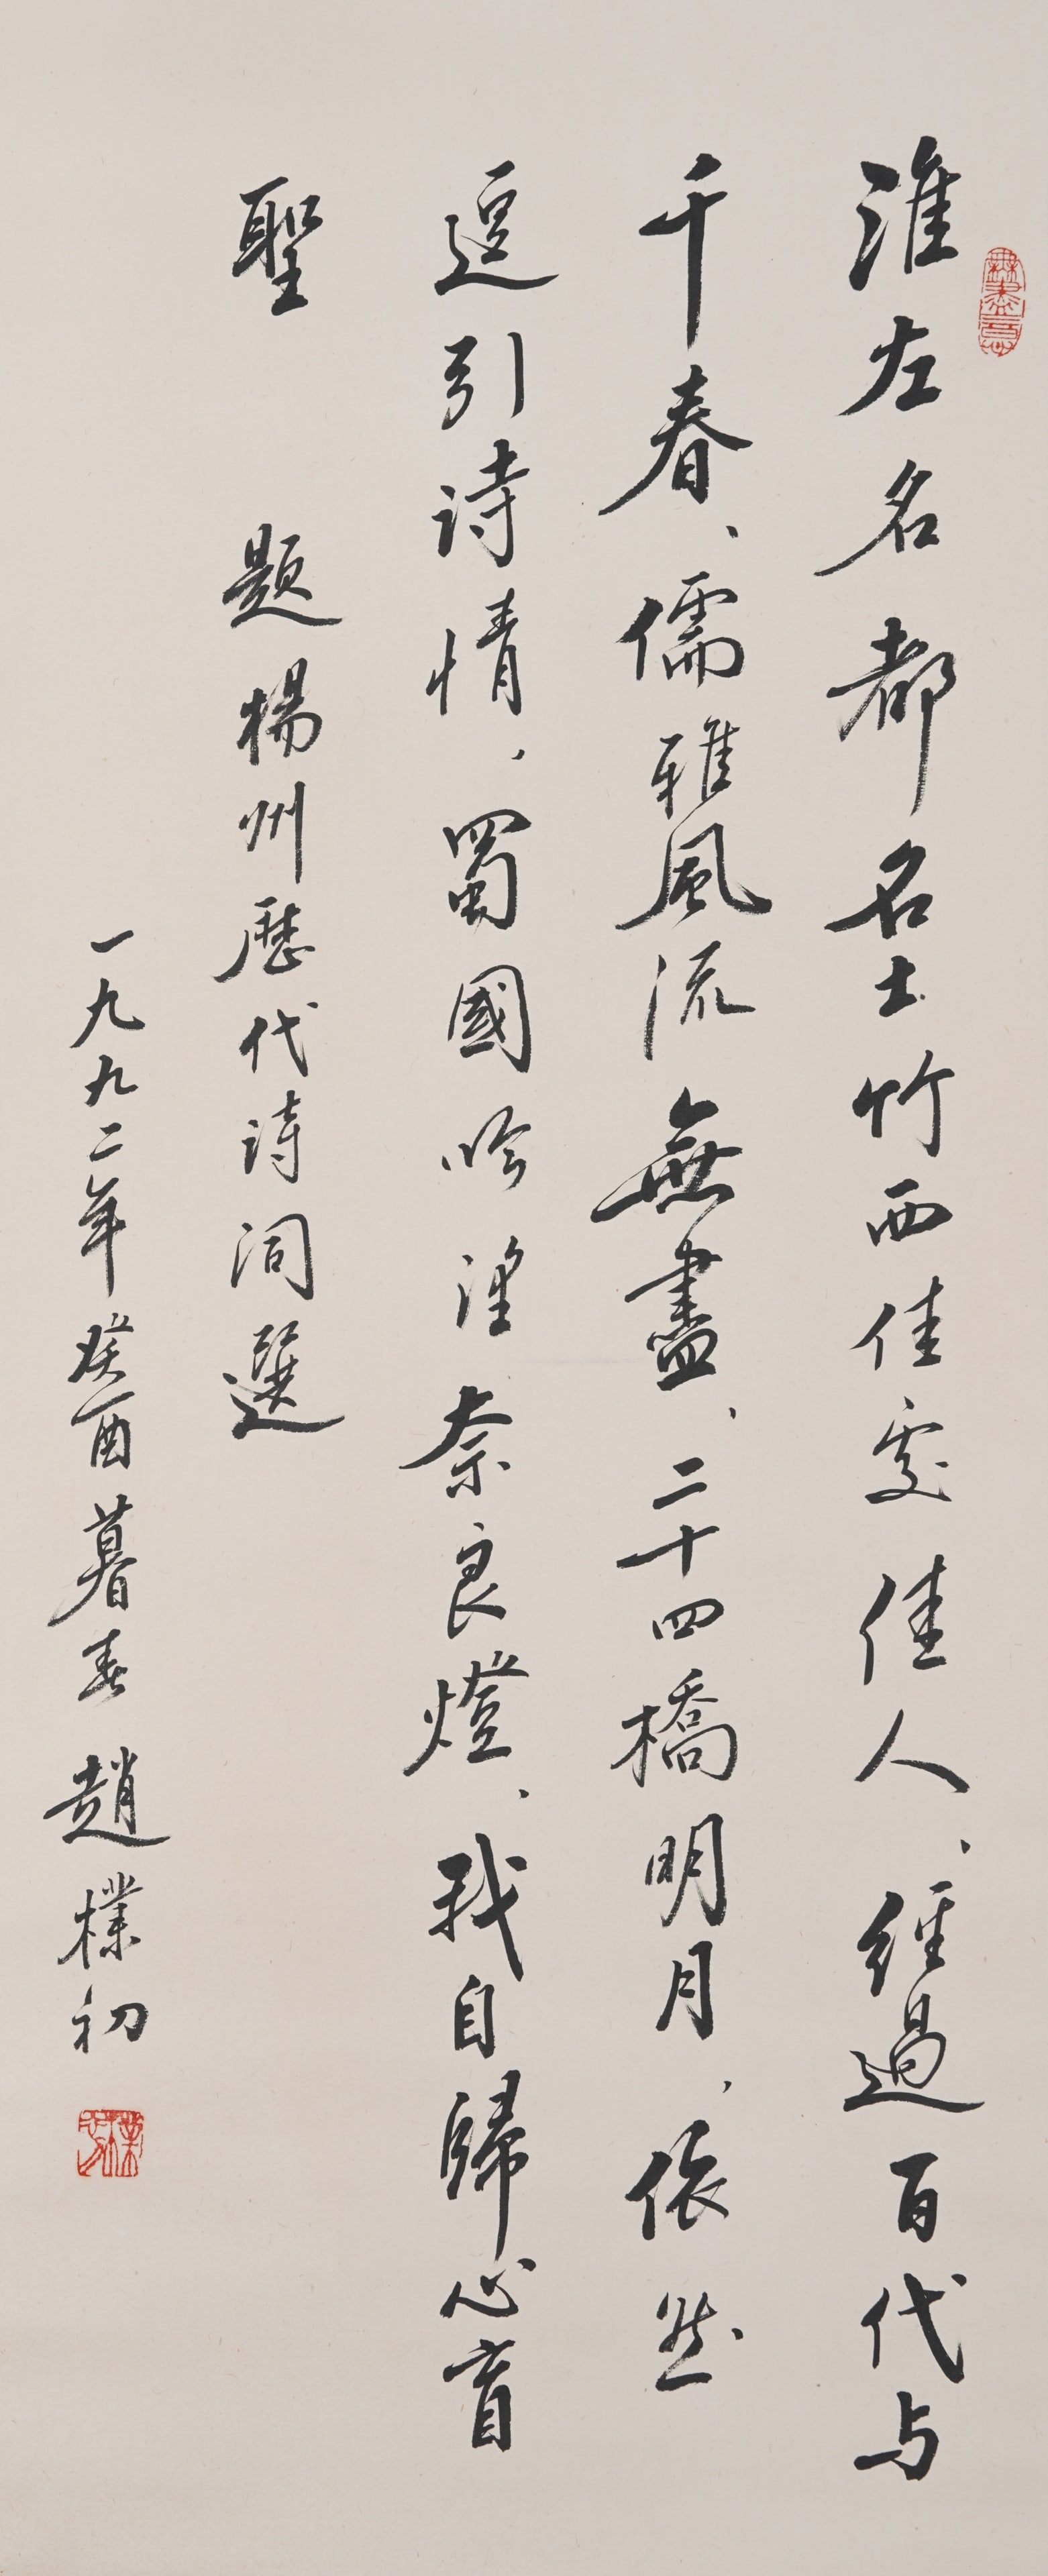 淮左名都名士竹西佳處佳人、經過百代与
千春、儒雅風流無盡、二十四橋明月、依然
逗引詩情、蜀國吟望奈良燈、我自歸心盲
聖
題揚州歷代詩詞選
一九九二年癸酉暮春 趙樸初
無盡意
樸初